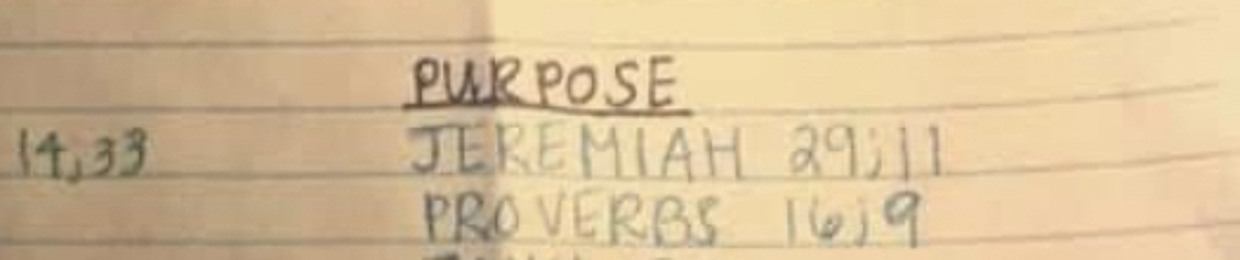 PURPOSE
14,33 JEREMIAH 29;11
PROVERBS 16;9